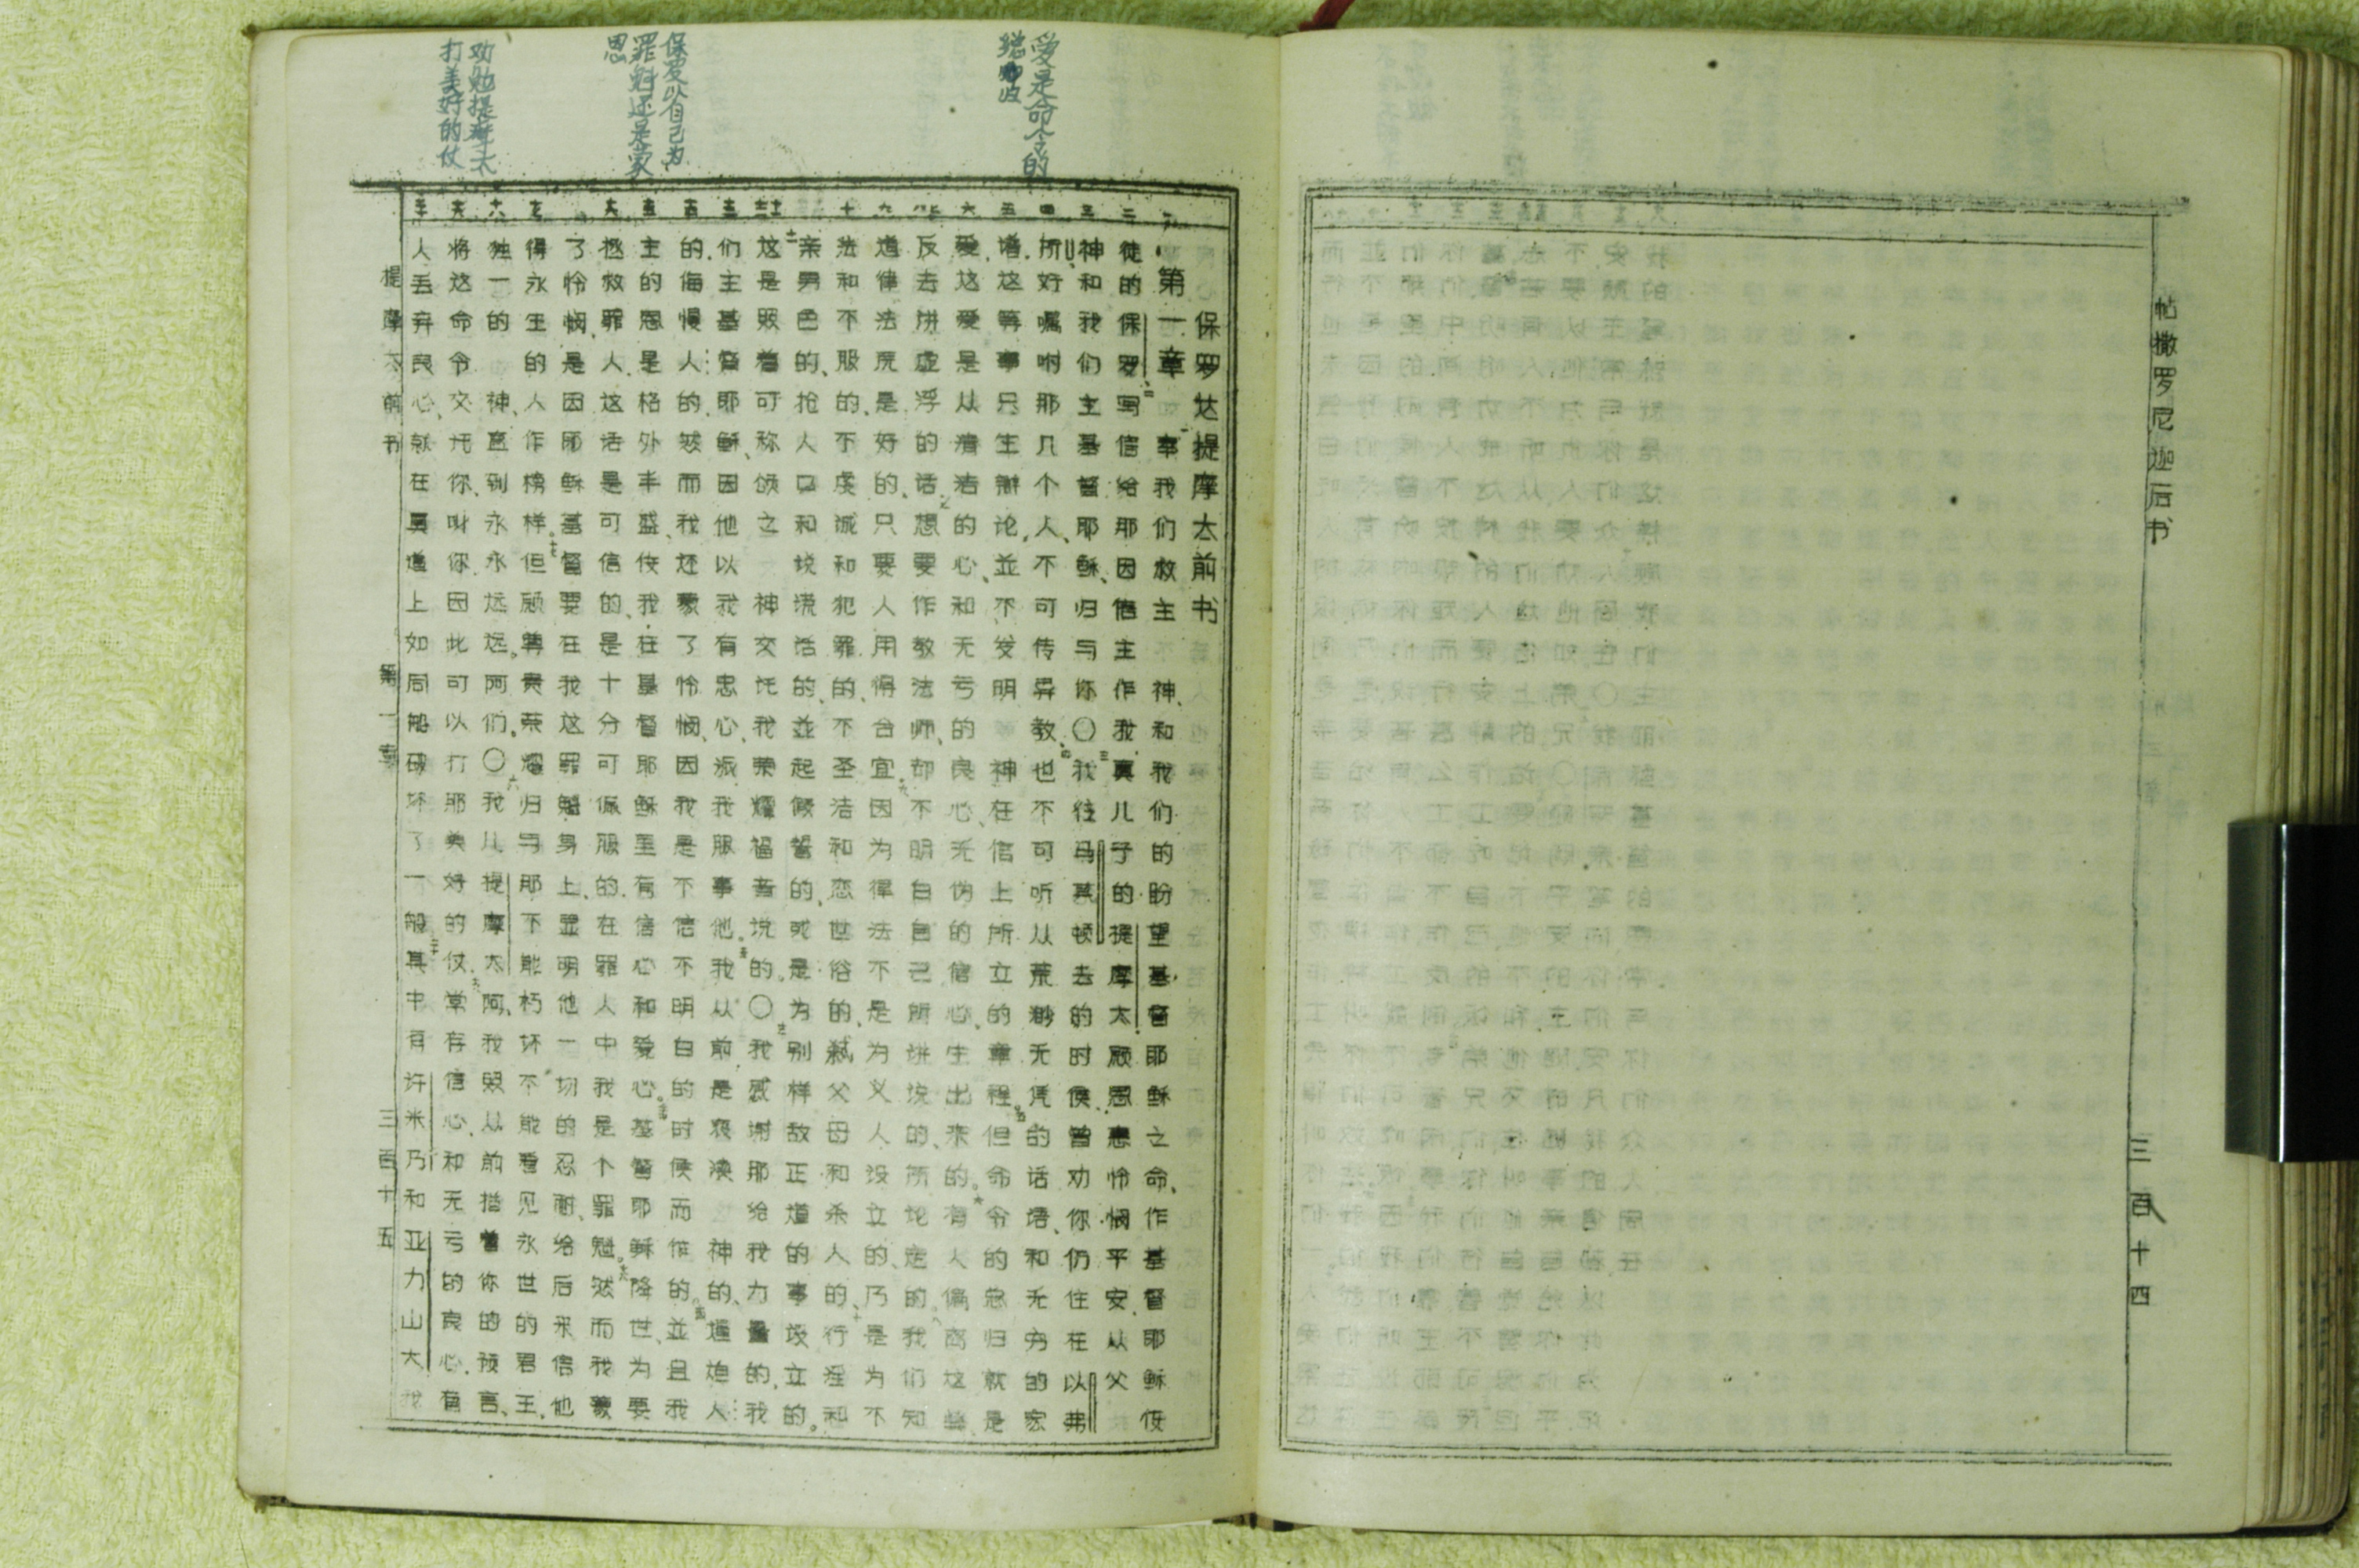 帖撒罗尼迦后书
三百十四
爱是命令的
总归
保罗以自己为
罪魁还是蒙
恩
劝勉提摩太
打美好的仗
保罗达提摩太前书
第一章 奉我们救主 神、和我们的盼望基督耶稣之命、作基督耶稣使
徒的保罗、写信给那因信主作我真儿子的提摩太愿恩惠怜悯平安、从父
神和我们主基督耶稣、归与你〇我往马其顿去的时侯曾劝你仍住在以弗
所、好嘱咐那几个人、不可传异教、也不可听从荒渺无凭的话语、和无穷的家
谱.这等事只生辩论、並不发明 神在信上所立的章程。但命令的总归就是
爱.这爱是从清洁的心、和无亏的良心、无伪的信心、生出来的。有人偏离这些
反去讲虚浮的话、想要作教法师、却不明白自己所讲说的、所论定的我们知
道律法原是好的、只要人用得合宜因为律法不是为义人设立的、乃是为不
法和不服的、不虔诚和犯罪的、不圣洁和恋世俗的、弑父母和杀人的、行淫和
亲男色的、抢人口和说谎话的、並起假誓的、或是为别样敌正道的事设立的。
这是照着可称颂之 神交托我荣耀福音说的。〇我感谢那给我力量的、我
们主基督耶稣、因他以我有忠心、派我服事他.我从前是亵渎 神的、逼迫人
的、侮慢人的.然而我还蒙了怜悯、因我是不信不明白的时侯而作的。並且我
主的恩是格外丰盛、使我在基督耶稣里有信心和爱心。基督耶稣降世、为要
拯救罪人、这话是可信的、是十分可佩服的.在罪人中我是个罪魁。然而我蒙
了怜悯、是因耶稣基督要在我这罪魁身上、显明他一切的忍耐、给后来信他
得永生的人作榜样。但愿尊贵荣耀归与那不能朽坏不能看见永世的君王、
独一的 神、直到永永远远。阿们。〇我儿提摩太阿、我照从前指着你的预言、
将这命令交托你、叫你因此可以打那美好的仗.常存信心、和无亏的良心.有
人丢弃良心、就在真道上如同船破坏了一般其中有许米乃和亚力山大.我
提摩太前书
第一章
三百十五